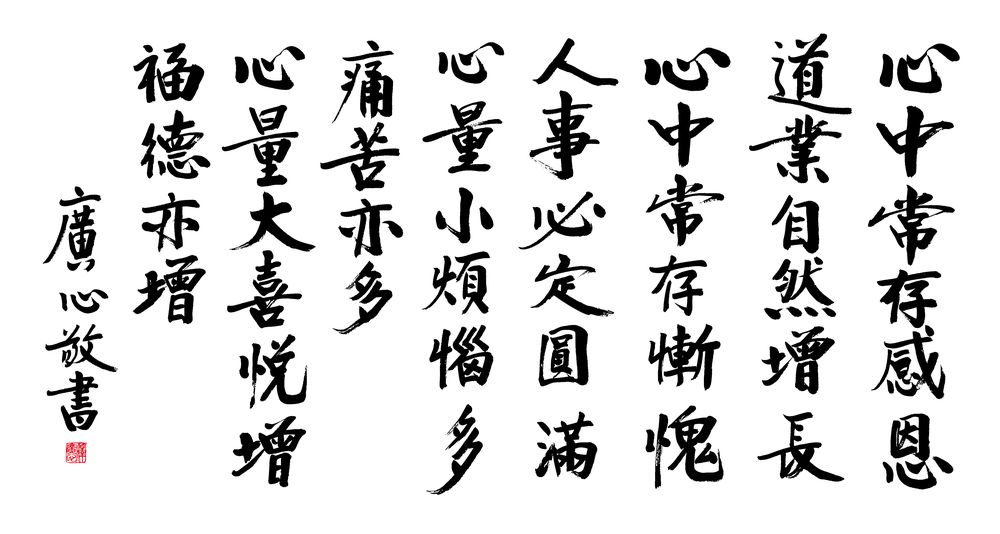 心中常存感恩
道業自然增長
心中常存慚愧
人事必定圓滿
心量小煩惱多
痛苦亦多
心量大喜悅增
福德亦增
廣心敬書